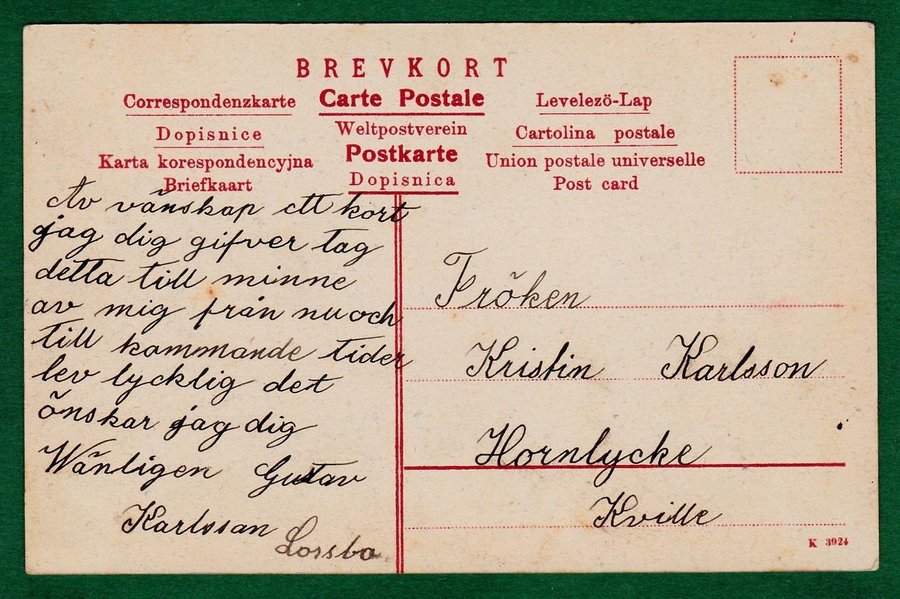 BREVKORT
Correspondenzkarte Carte Postale Levelezö-Lap
Dopisnice Weltpostverein Cartolina postale
Karta korespondencyjna Postkarte Union postale universelle
Briefkaart Dopisnica Post card
Av vänskap ett kort
jag dig gifver tag
detta till minne
av mig från nu och
till kommande tider
lev lycklig det
önskar jag dig
Wänligen Gustav
Karlssan
Lorsba
Fröken
Kristin Karlsson
Hornlycke
Kville
K 3924